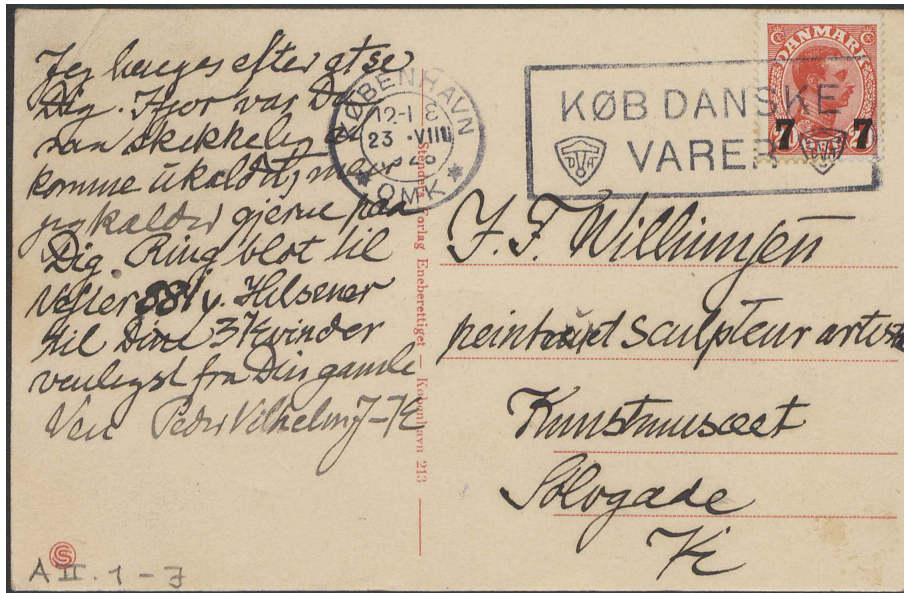 Jeg længes efter at se
Dig. Ifjor var Du
saa skikkelig at
komme ukaldet, men
jeg kalder gjerne paa
Dig. Ring blot til
Vester 881y. Hilsener
til Dine 3 Kvinder
venligst fra Din gamle
Ven Peder Vilhelm J-K
A II. 1 - 7
KØBENHAVN
12-1 E
23 VIII
OMK
Stenders Forlag Eneberettiget — København 213
KØB DANSKE
VARER
DANMARK
7 7
J. F. Willumsen
peintre et sculpteur artiste
Kunstmuseet
Sølvgade
K